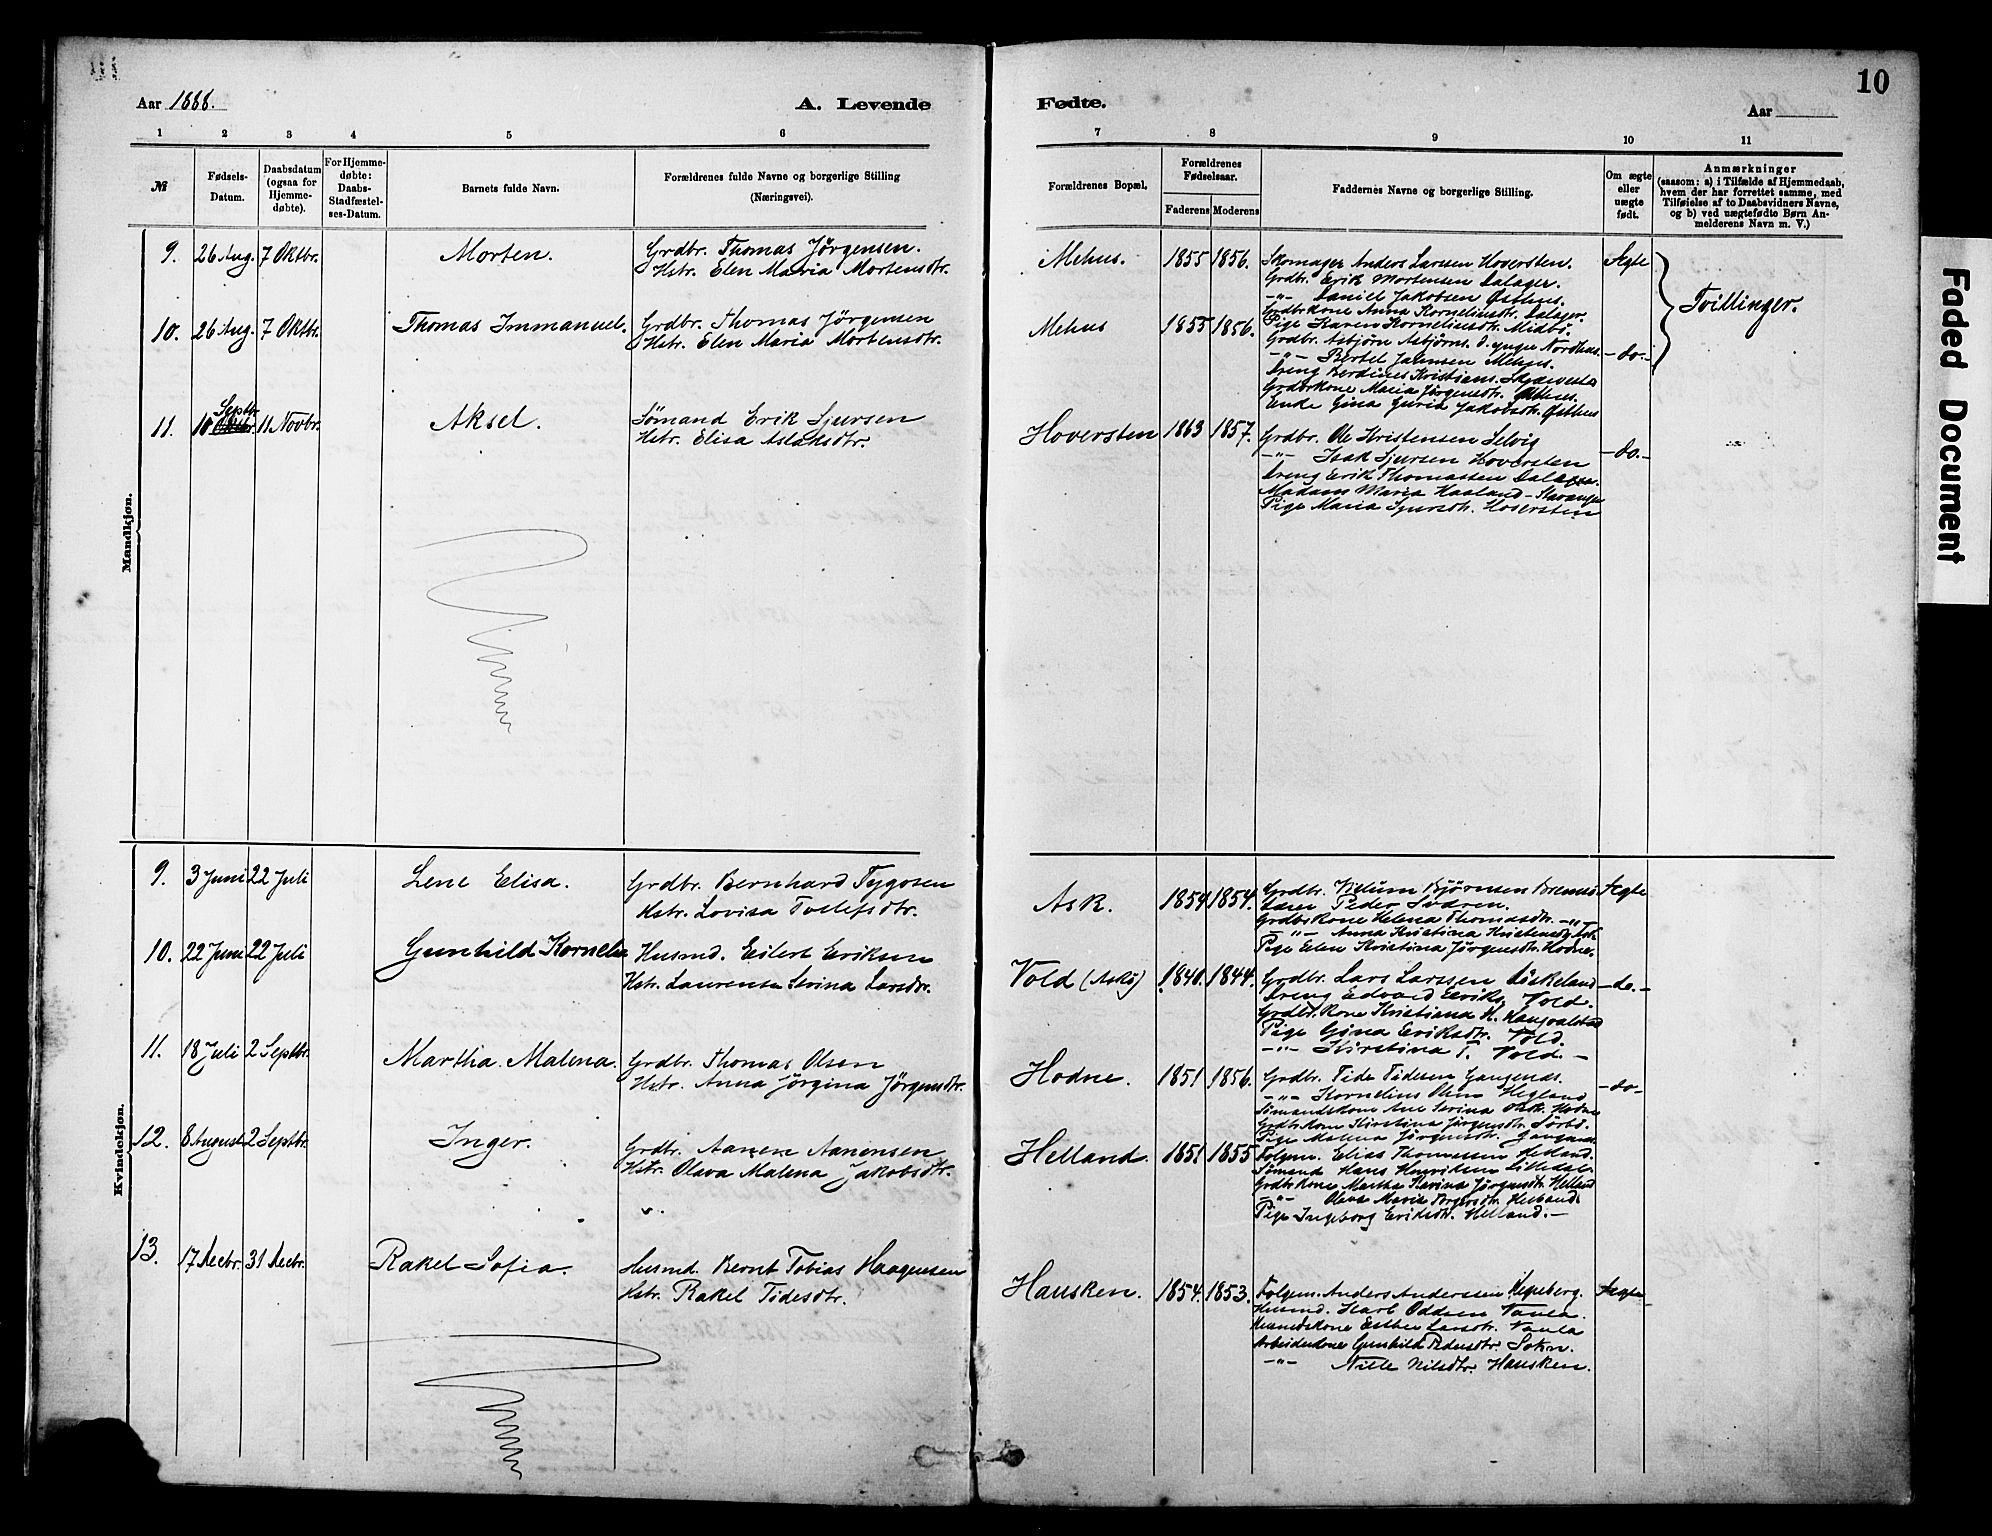 10
Aar 1888.
A. Levende
Fødte.
Aar
1 2 3 4 5 6
7 8 9 10 11
№
Fødsels-
Datum.
Daabsdatum
(ogsaa for
Hjemme-
døbte).
For Hjemme-
døbte:
Daabs-
Stadfæstel-
ses-Datum.
Barnets fulde Navn.
Forældrenes fulde Navne og borgerlige Stilling
(Næringsvei).
Forældrenes Bopæl.
Forældrenes
Fødselsaar.
Faderens Moderens
Faddernes Navne og borgerlige Stilling.
Om ægte
eller
uægte
født.
Anmærkninger
(saasom: a) i Tilfælde af Hjemmedaab,
hvem der har forrettet samme, med
Tilføielse af to Daabsvidners Navne,
og b) ved uægtefødte Børn An-
melderens Navn m. V.)
Mandkjøn.
9. 26 Aug. 7 Oktbr. Morten.
Grdbr. Thomas Jørgensen.
Hstr. Elen Maria Mortensdtr.
Mehus. 1855 1856.
Skomager Anders Larsen Hoversten.
Grdbr. Erik Mortensen Dalager.
-"- Daniel Jakobsen Østhus.
Grdbrkone Anna Kornelius dtr. Dalager.
Pige Karen Korneliusdtr. Midbø.
Ægte
Tvillinger.
10. 26 Aug. 7 Oktbr. Thomas Immanuel.
Grdbr. Thomas Jørgensen
Hstr. Elen Maria Mortensdtr.
Mehus 1855 1856.
Grdbr. Asbjørn Asbjørns. d. yngre Nordhus.
-"- Bertel Mehus.
Dreng Berdines Kristians.
Grdbrkone Maria Jørgensdtr. Østhus.
Enke Gina Guria Jakobsdtr. Østhus
-do.-
11. 10 Septbr. Oktbr. 11 Novbr. Aksel.
Sømand Erik Sjursen
Hstr. Elisa Aslaksdtr.
Hoversten 1863 1857.
Grdbr. Ole Kristensen Selvig
-"- Isak Sjursen Hoversten
Dreng Erik Thomassen Dalager.
Madam Maria Haaland - Stavanger
Pige Maria Sjursdtr. Hoversten
-do.-
Kvindekjøn.
9. 3 Juni 22 Juli Lene Elisa.
Grdbr. Bernhard Tygesen
Hstr. Lovisa Tollefsdtr.
Ask. 1854 1854.
Grdbr. Bjørnsen
Peder
Grdbrkone Helena Thomasdtr. -"-
-"- Anna Kristina
Pige Elen Kristina Jørgensdtr. Hodne.
Ægte
10. 22 Juni 22 Juli Gunhild Kornelia
Husmd. Eilert Eriksen
Hstr. Laurense Serina Larsdtr.
Vold (Askø) 1840. 1844.
Grdbr. Lars Larssen Eskeland
Dreng Edvard Eriks. Vold.
Grdbr. kone Kristiana H. Haugvalstad
Pige Gina Eriksdtr. Vold.
-"- Kirstina T. Vold.-
-do.-
11. 18 Juli 2 Septbr. Martha Malena.
Grdbr. Thomas Olsen
Hstr. Anna Jørgina Jørgensdtr.
Hodne. 1851 1856.
Grdbr. Tide Tidesen
-"- Kornelius Olsen Hegland
Sømandskone Ane Serina Olsdtr. Hodne
Grdbrkone Kirstina Jørgensdtr. Sørbø.
Pige Malena Jørgensdtr.
-do-
12. 8 August 2 Septbr. Inger.
Grdbr. Aanen Aanensen
Hstr. Olava Malena Jakobsdtr.
Helland. 1851 1855
Folgem. Elias Thomassen Helland.
Sømand Hans Henriksen
Grdbrkone Martha Jørgensdtr. Helland
-"- Olava Maria Helland.
Pige Ingeborg Eriksdtr. Helland.-
13. 17 Decbr. 31 Decbr. Rakel Sofia.
Husmd. Bernt Tobias Haagensen
Hstr. Rakel Tidesdtr.
Hausken. 1854. 1853.
Folgem. Anders Anderssen
Husmd. Karl Oddsen Vaula.
Husmdskone Esther Larsdtr. Vaula
Gunhild Pedersdtr. Sokn.
-"- Nille Nilsdtr. Hausken.
Ægte
Faded Document